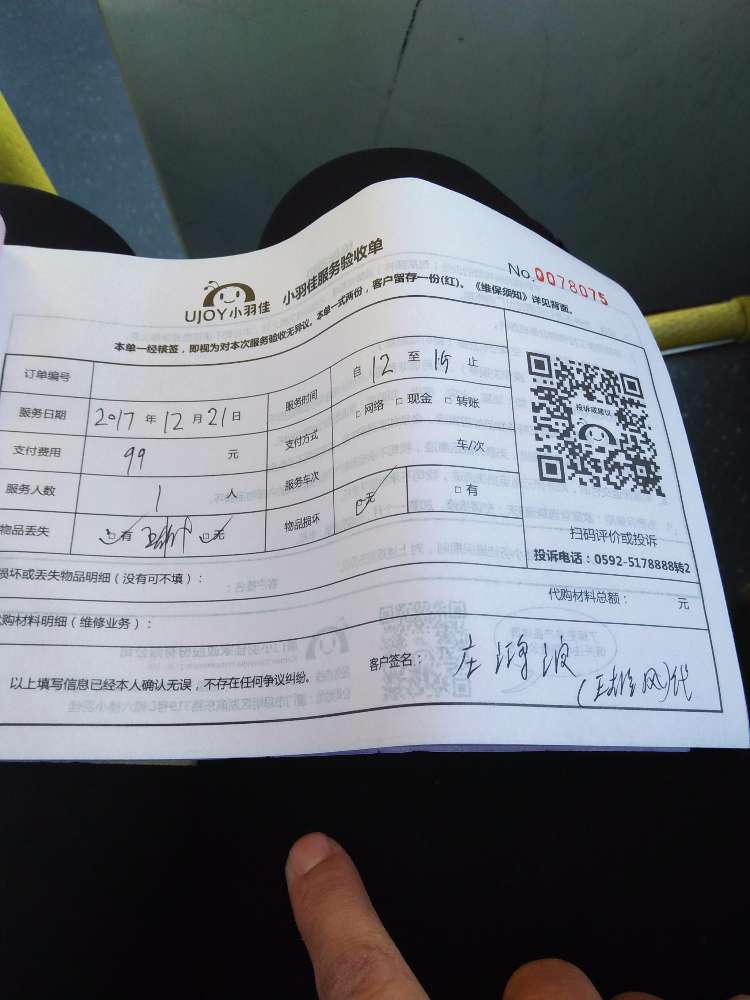 UJOY小羽佳 小羽佳服务验收单
No.0078075
本单一经核签，即视为对本次服务验收无异议。本单一式两份，客户留存一份(红)。《维保须知》详见背面。
订单编号 服务时间 自 12 至 15 止
服务日期 2017 年 12 月 21 日 支付方式 □网络 □现金 □转账
支付费用 99 元 服务车次 车/次
服务人数 1 人 物品损坏 □无 □有
物品丢失 □有 □无
投诉或建议
扫码评价或投诉
投诉电话：0592-5178888转2
损坏或丢失物品明细（没有可不填）：
代购材料总额： 元
代购材料明细（维修业务）：
以上填写信息已经本人确认无误，不存在任何争议纠纷。
客户签名：